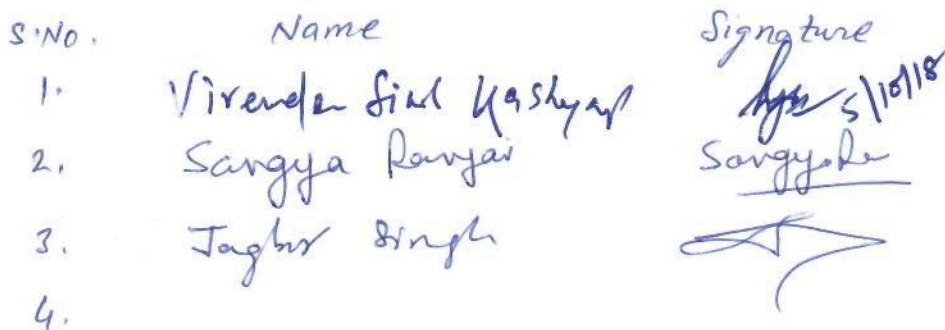 S.No. Name Signature
1. Virender Singh Kashyap 5/10/18
2. Sangya Ranjan
3. Jagbir Singh
4.